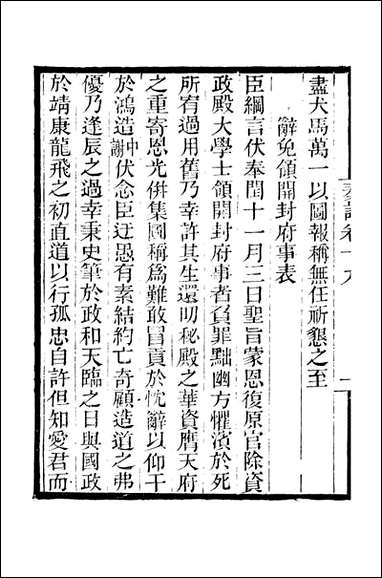 奏議卷十九 一
盡犬馬萬一以圖報稱無任祈懇之至
辭免領開封府事表
臣綱言伏奉閏十一月三日聖旨蒙恩復原官除資
政殿大學士領開封府事者負罪黜幽方懼濱於死
所宥過用舊乃幸許其生還叨秘殿之華資膺天府
之重寄恩光併集國稱為難敢冒貢於忱辭以仰干
於鴻造中謝伏念臣迂愚有素結約亡奇顧造道之弗
優乃逢辰之過幸秉史筆於政和天臨之日與國政
於靖康龍飛之初直道以行孤忠自許但知愛君而